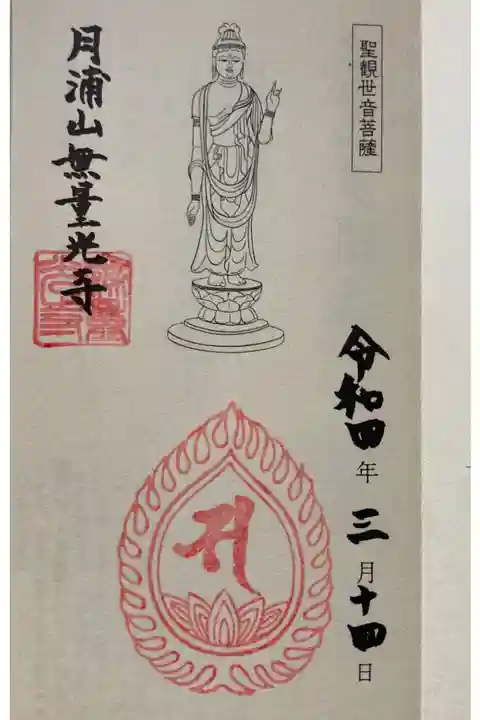 聖観世音菩薩
令和四年三月十四日
月浦山無量光寺
無量光寺